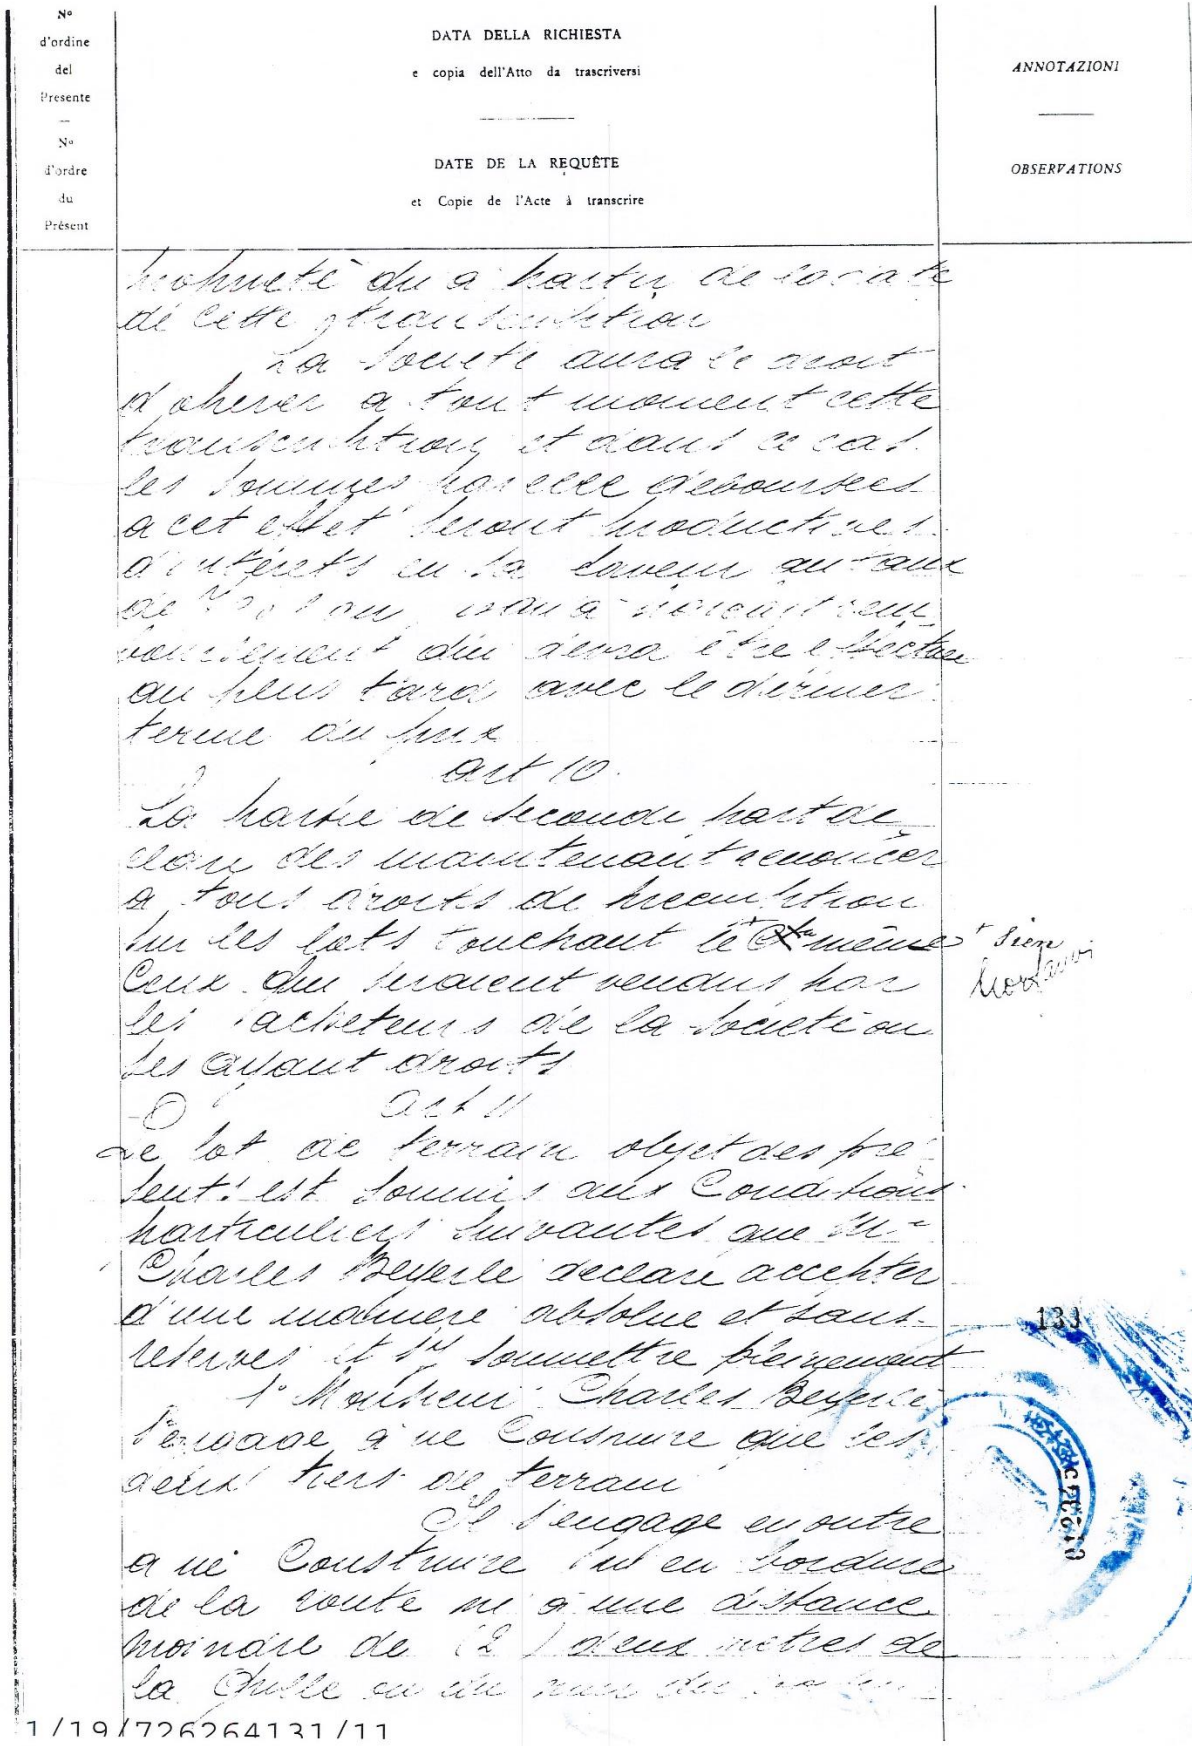 N°
d'ordine
del
Presente
N°
d'ordre
du
Présent
DATA DELLA RICHIESTA
e copia dell'Atto da trascriversi
DATE DE LA REQUÊTE
et Copie de l'Acte à transcrire
ANNOTAZIONI
OBSERVATIONS
propriété du a partir de la date
de cette transcription
La Société aura le droit
d'operer a tout moment cette
transcription et dans ce cas
les sommes par elle deboursées
a cet effet seront productives
d'intérets en sa faveur au taux
de an
boursement qui devra être effectué
au plus tard avec le dernier
terme du prix
Art 10.
La partie de seconde part de
clare des maintenant renoncer
a tous droits de preemption
sur les lots touchant le même
Ceux qui seraient vendus par
les acheteurs de la Société ou
ses ayant droits
Art 11
Le lot de terrain objet des pré
sents est soumis aux Conditions
particuliers suivantes que Mr
Charles Beyerlé declare accepter
d'une maniere absolue et sans
reserves et s'y soumettre pleinement
1° Monsieur Charles Beyerlé
s'engage a ne Construire que les
deux tiers de terrain
Il s'engage en outre
a ne Construire ni en bordure
de la route ni à une distance
moindre de (2) deux mètres de
la Grille ou du mur
+ sien
133
012375
1/19/726264131/11